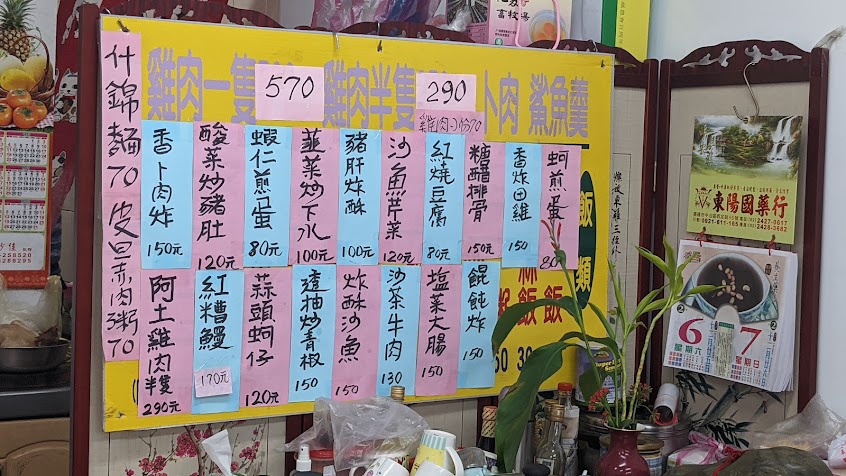 什錦麵70 皮蛋瘦肉粥70
雞肉一隻 570 雞肉半隻 290 卜肉 鯊魚羹
香卜肉炸 150元
酸菜炒豬肚 120元
蝦仁煎蛋 80元
韮菜炒下水 100元
豬肝炸酥 100元
沙魚芹菜 120元
紅燒豆腐 80元
糖醋排骨 150元
香炸田雞 150
蚵煎蛋 80
阿土雞肉半隻 290元
紅糟鰻 170元
蒜頭蚵仔 120元
透抽炒青椒 150
炸酥沙魚 150
沙茶牛肉 130
塩菜大腸 150
餛飩炸 150
飯類
飯 飯
30
東陽國藥行
2427-0617
0921-611-165
2428-3682
6 星期六
7 星期日